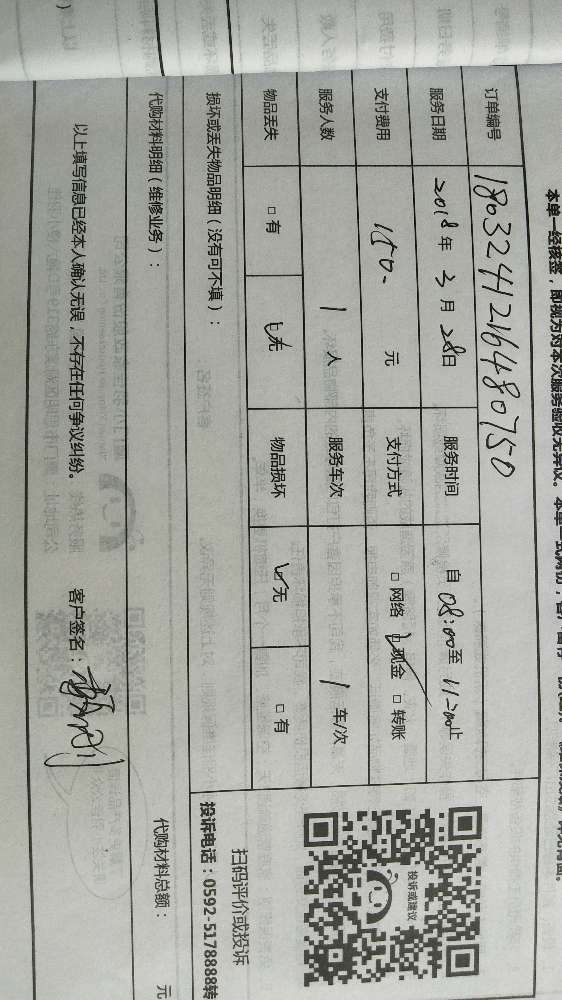 本单一经接签，即视为对本次服务验收无异议。本单一式两份，客户留存一份
订单编号 1803241216480750
服务日期 2018年 3月 28日 服务时间 自 08:00至 11:20止
支付费用 150- 元 支付方式 □ 网络 ☑ 现金 □ 转账
服务人数 1 人 服务车次 1 车/次
物品丢失 □ 有 ☑ 无 物品损坏 ☑ 无 □ 有
损坏或丢失物品明细（没有可不填）：
代购材料明细（维修业务）： 代购材料总额： 元
以上填写信息已经本人确认无误，不存在任何争议纠纷。 客户签名：
投诉或建议
扫码评价或投诉
投诉电话：0592-5178888转